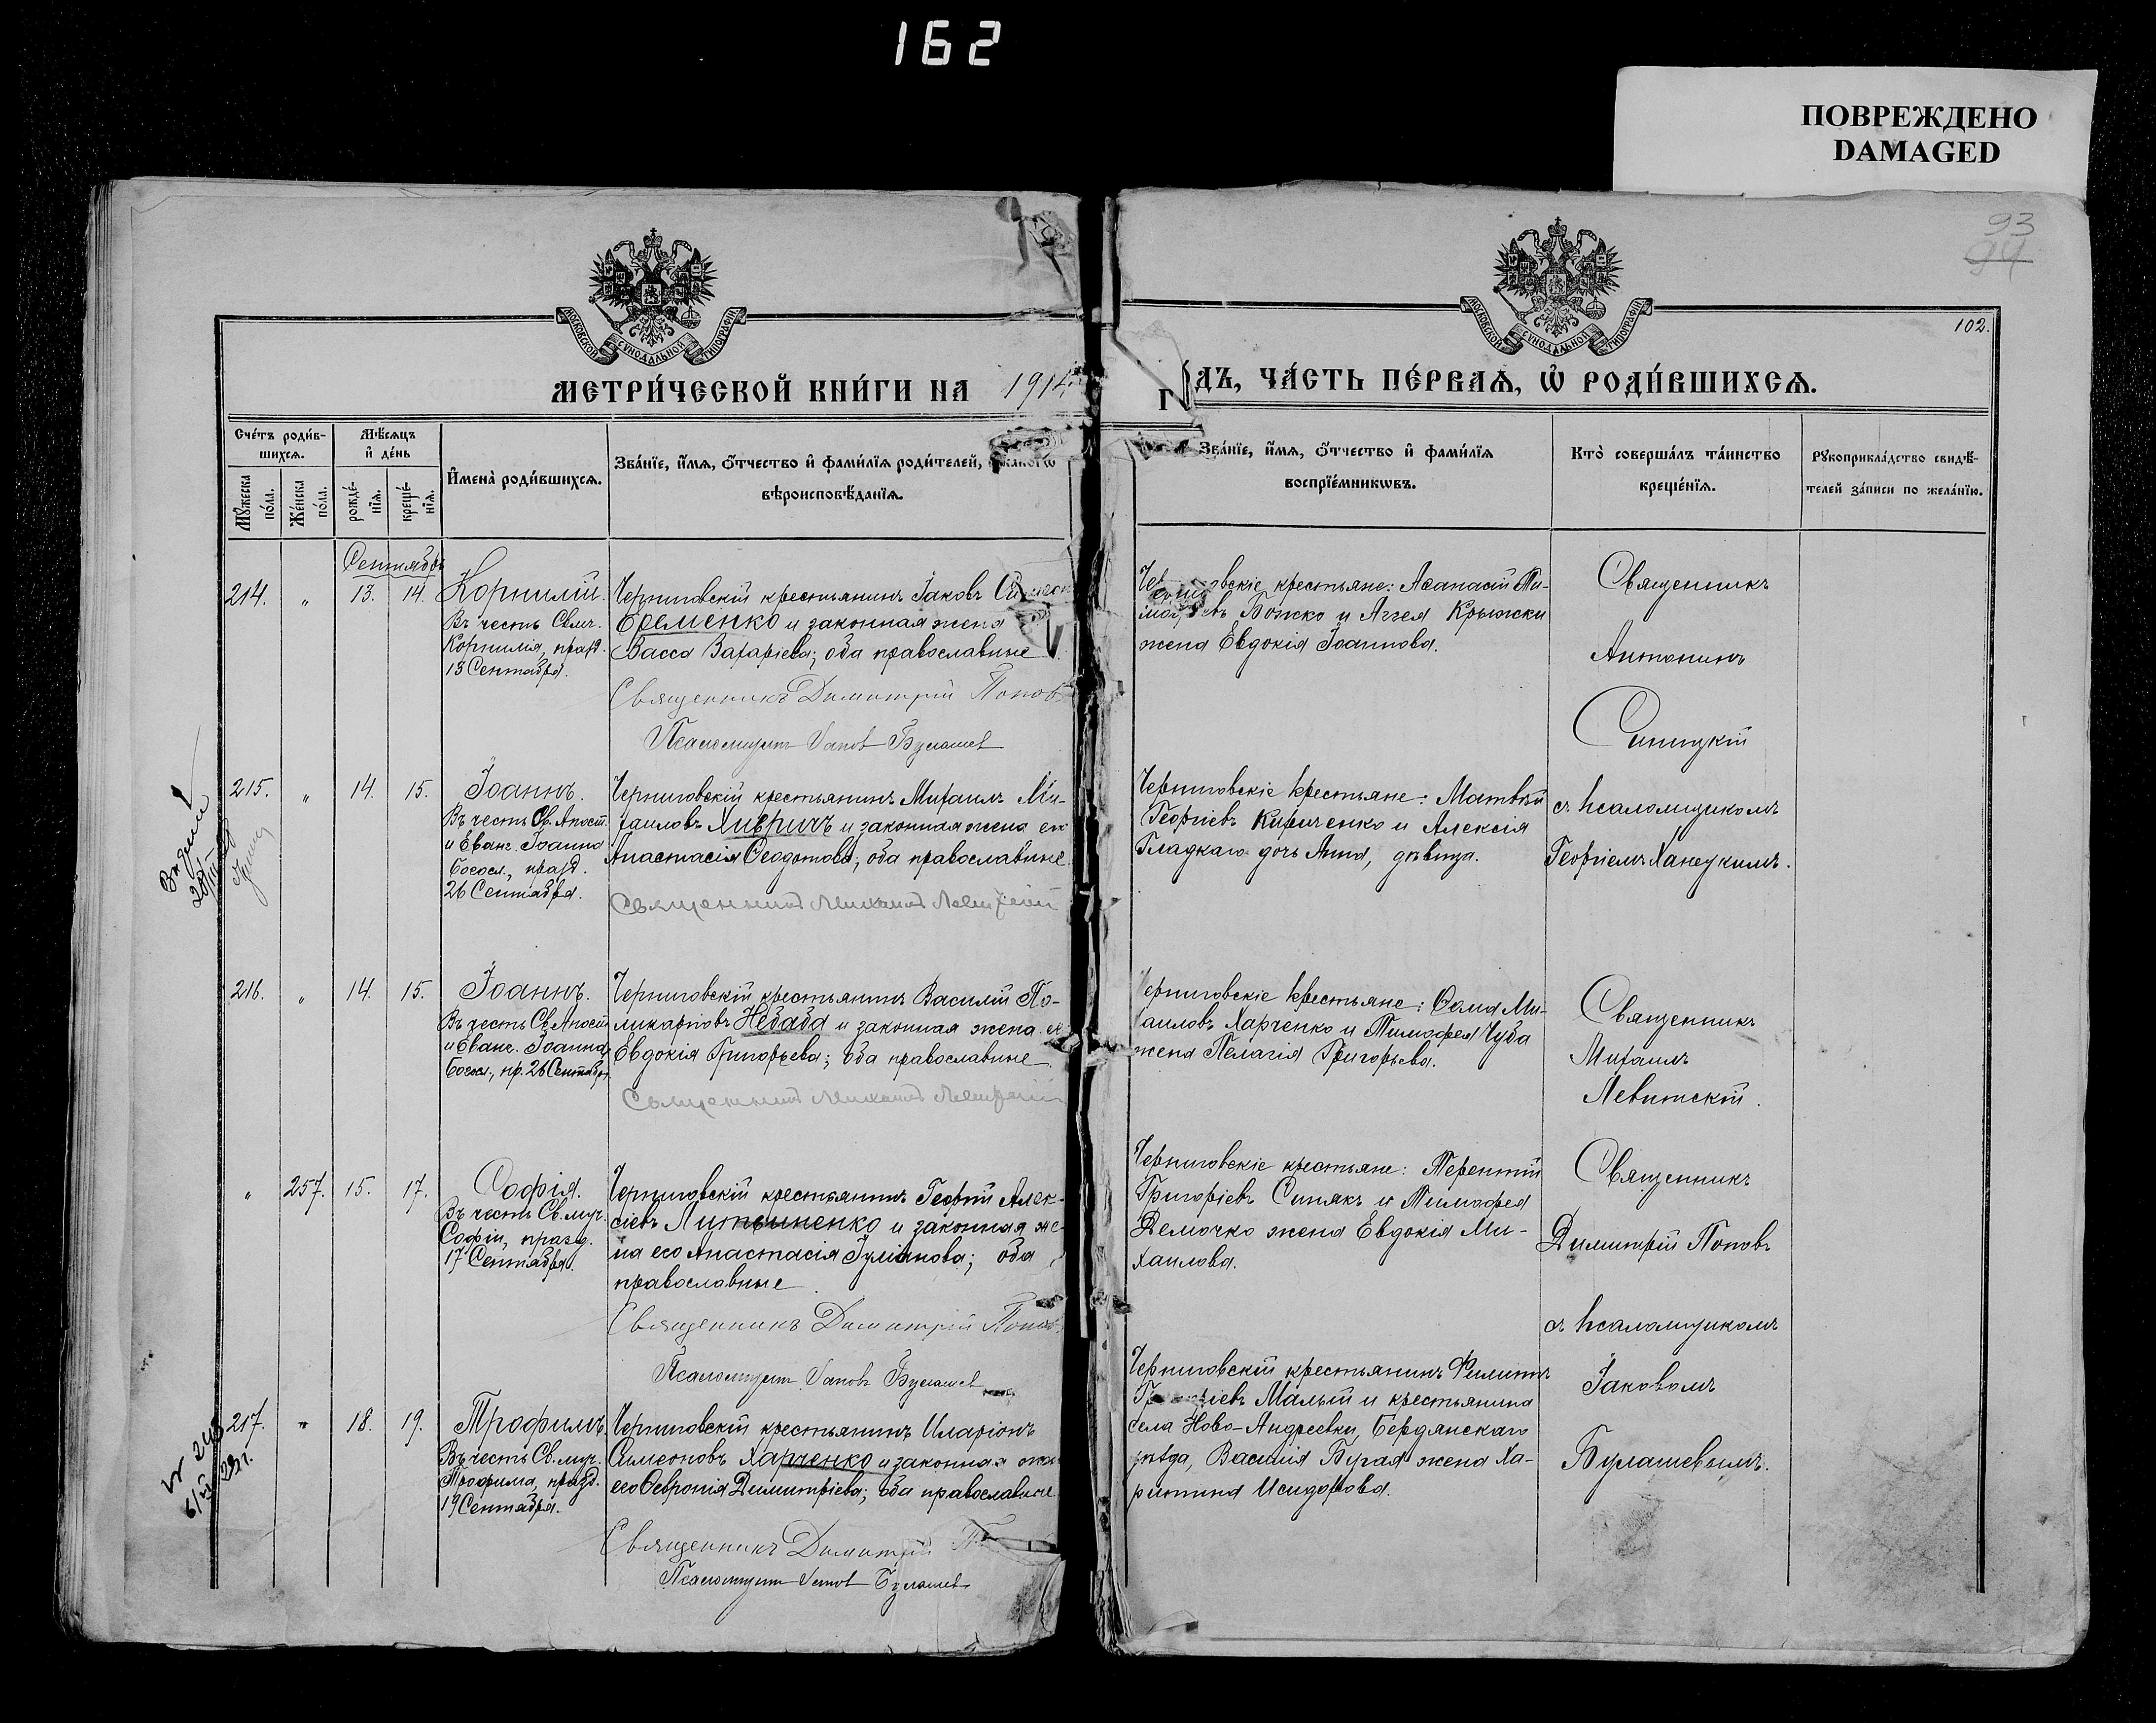 162
ПОВРЕЖДЕНО
DAMAGED
93
94
102.
МОСКОВСКОЙ СУНОДАЛЬНОЙ ТИПОГРАФІИ
МОСКОВСКОЙ СУНОДАЛЬНОЙ ТИПОГРАФІИ
МЕТРИ́ЧЕСКОЙ КНИ́ГИ НА 1914
Г ДЪ, ЧА́СТЬ ПЕ́РВАѦ, Ѡ҆ РОДИ́ВШИХСѦ.
Сче́тъ роди́в-
шихсѧ.
Мѣ́сѧцъ
и҆ де́нь
Мꙋ́жеска по́ла.
Же́нска по́ла.
рожде́-нїѧ.
креще́-нїѧ.
И҆мена̀ роди́вшихсѧ.
Зва́нїе, и҆́мѧ, ѻ҆́тчество и҆ фами́лїѧ роди́телей, и҆ како́гѡ
вѣроисповѣ́данїѧ.
Зва́нїе, и҆́мѧ, ѻ҆́тчество и҆ фами́лїѧ
воспрїе́мникѡвъ.
Кто̀ соверша́лъ та́инство
креще́нїѧ.
Рꙋкоприкла́дство свидѣ́-
телей за́писи по жела́нїю.
Сентябрь
214. " 13. 14. Корнилій.
Въ честь Свмч.
Корнилія, празд.
13 Сентября.
Черниговскій крестьянинъ Іаковъ
Еременко и законная жена
Васса Захаріева; оба православные
Священникъ Димитрій Поповъ
Псаломщикъ Іаковъ Булашев
Черниговскіе крестьяне: Аѳанасій Ти-
моѳеевъ Божко и Аггея Крыжски
жена Евдокія Іоаннова.
Священникъ
Антонинъ
Синицкій
215. " 14. 15. Іоаннъ.
Въ честь Св. Апост.
и Еванг. Іоанна
Богосл., празд.
26 Сентября.
Черниговскій крестьянинъ Михаилъ Ми-
хаиловъ Хивричъ и законная жена его
Анастасія Ѳеодотова; оба православные.
Священник Михаил Левитский
Черниговскіе крестьяне: Матвѣй
Георгіевъ Кириченко и Алексія
Гладкаго дочь Анна, дѣвица.
съ псаломщикомъ
Георгіемъ Ханецкимъ.
216. " 14. 15. Іоаннъ.
Въ честь Св. Апост.
и Еванг. Іоанна
Богосл., пр. 26 Сентября
Черниговскій крестьянинъ Василій По-
ликарповъ Небаба и законная жена его
Евдокія Григорьева; оба православные
Священник Михаил Левитский
Черниговскіе крестьяне: Ѳома Ми-
хаиловъ Харченко и Тимоѳея Чуба
жена Пелагія Григорьева.
Священникъ
Михаилъ
Левитскій.
" 257. 15. 17. Софія.
Въ честь Св. муч.
Софіи, празд.
17 Сентября.
Черниговскій крестьянинъ Георгій Алек-
сіевъ Литвиненко и законная же-
на его Анастасія Іуліанова; оба
православные.
Священникъ Димитрій Поповъ
Псаломщикъ Іаковъ Булашев
Черниговскіе крестьяне: Терентій
Григоріевъ Синякъ и Тимоѳея
Демочко жена Евдокія Ми-
хаилова.
Священникъ
Димитрій Поповъ
съ псаломщикомъ
Іаковомъ
Булашевымъ.
217. " 18. 19. Трофимъ.
Въ честь Св. муч.
Трофима, празд.
19 Сентября.
Черниговскій крестьянинъ Иларіонъ
Симеоновъ Харченко и законная жена
его Ѳевронія Димитріева; оба православные
Священникъ Димитрій
Псаломщикъ Іаков Булашев
Черниговскій крестьянинъ Филиппъ
Григоріевъ Малый и крестьянина
села Ново-Андреевки, Бердянскаго
уѣзда, Василія Бугая жена Ха-
ритина Исидорова.